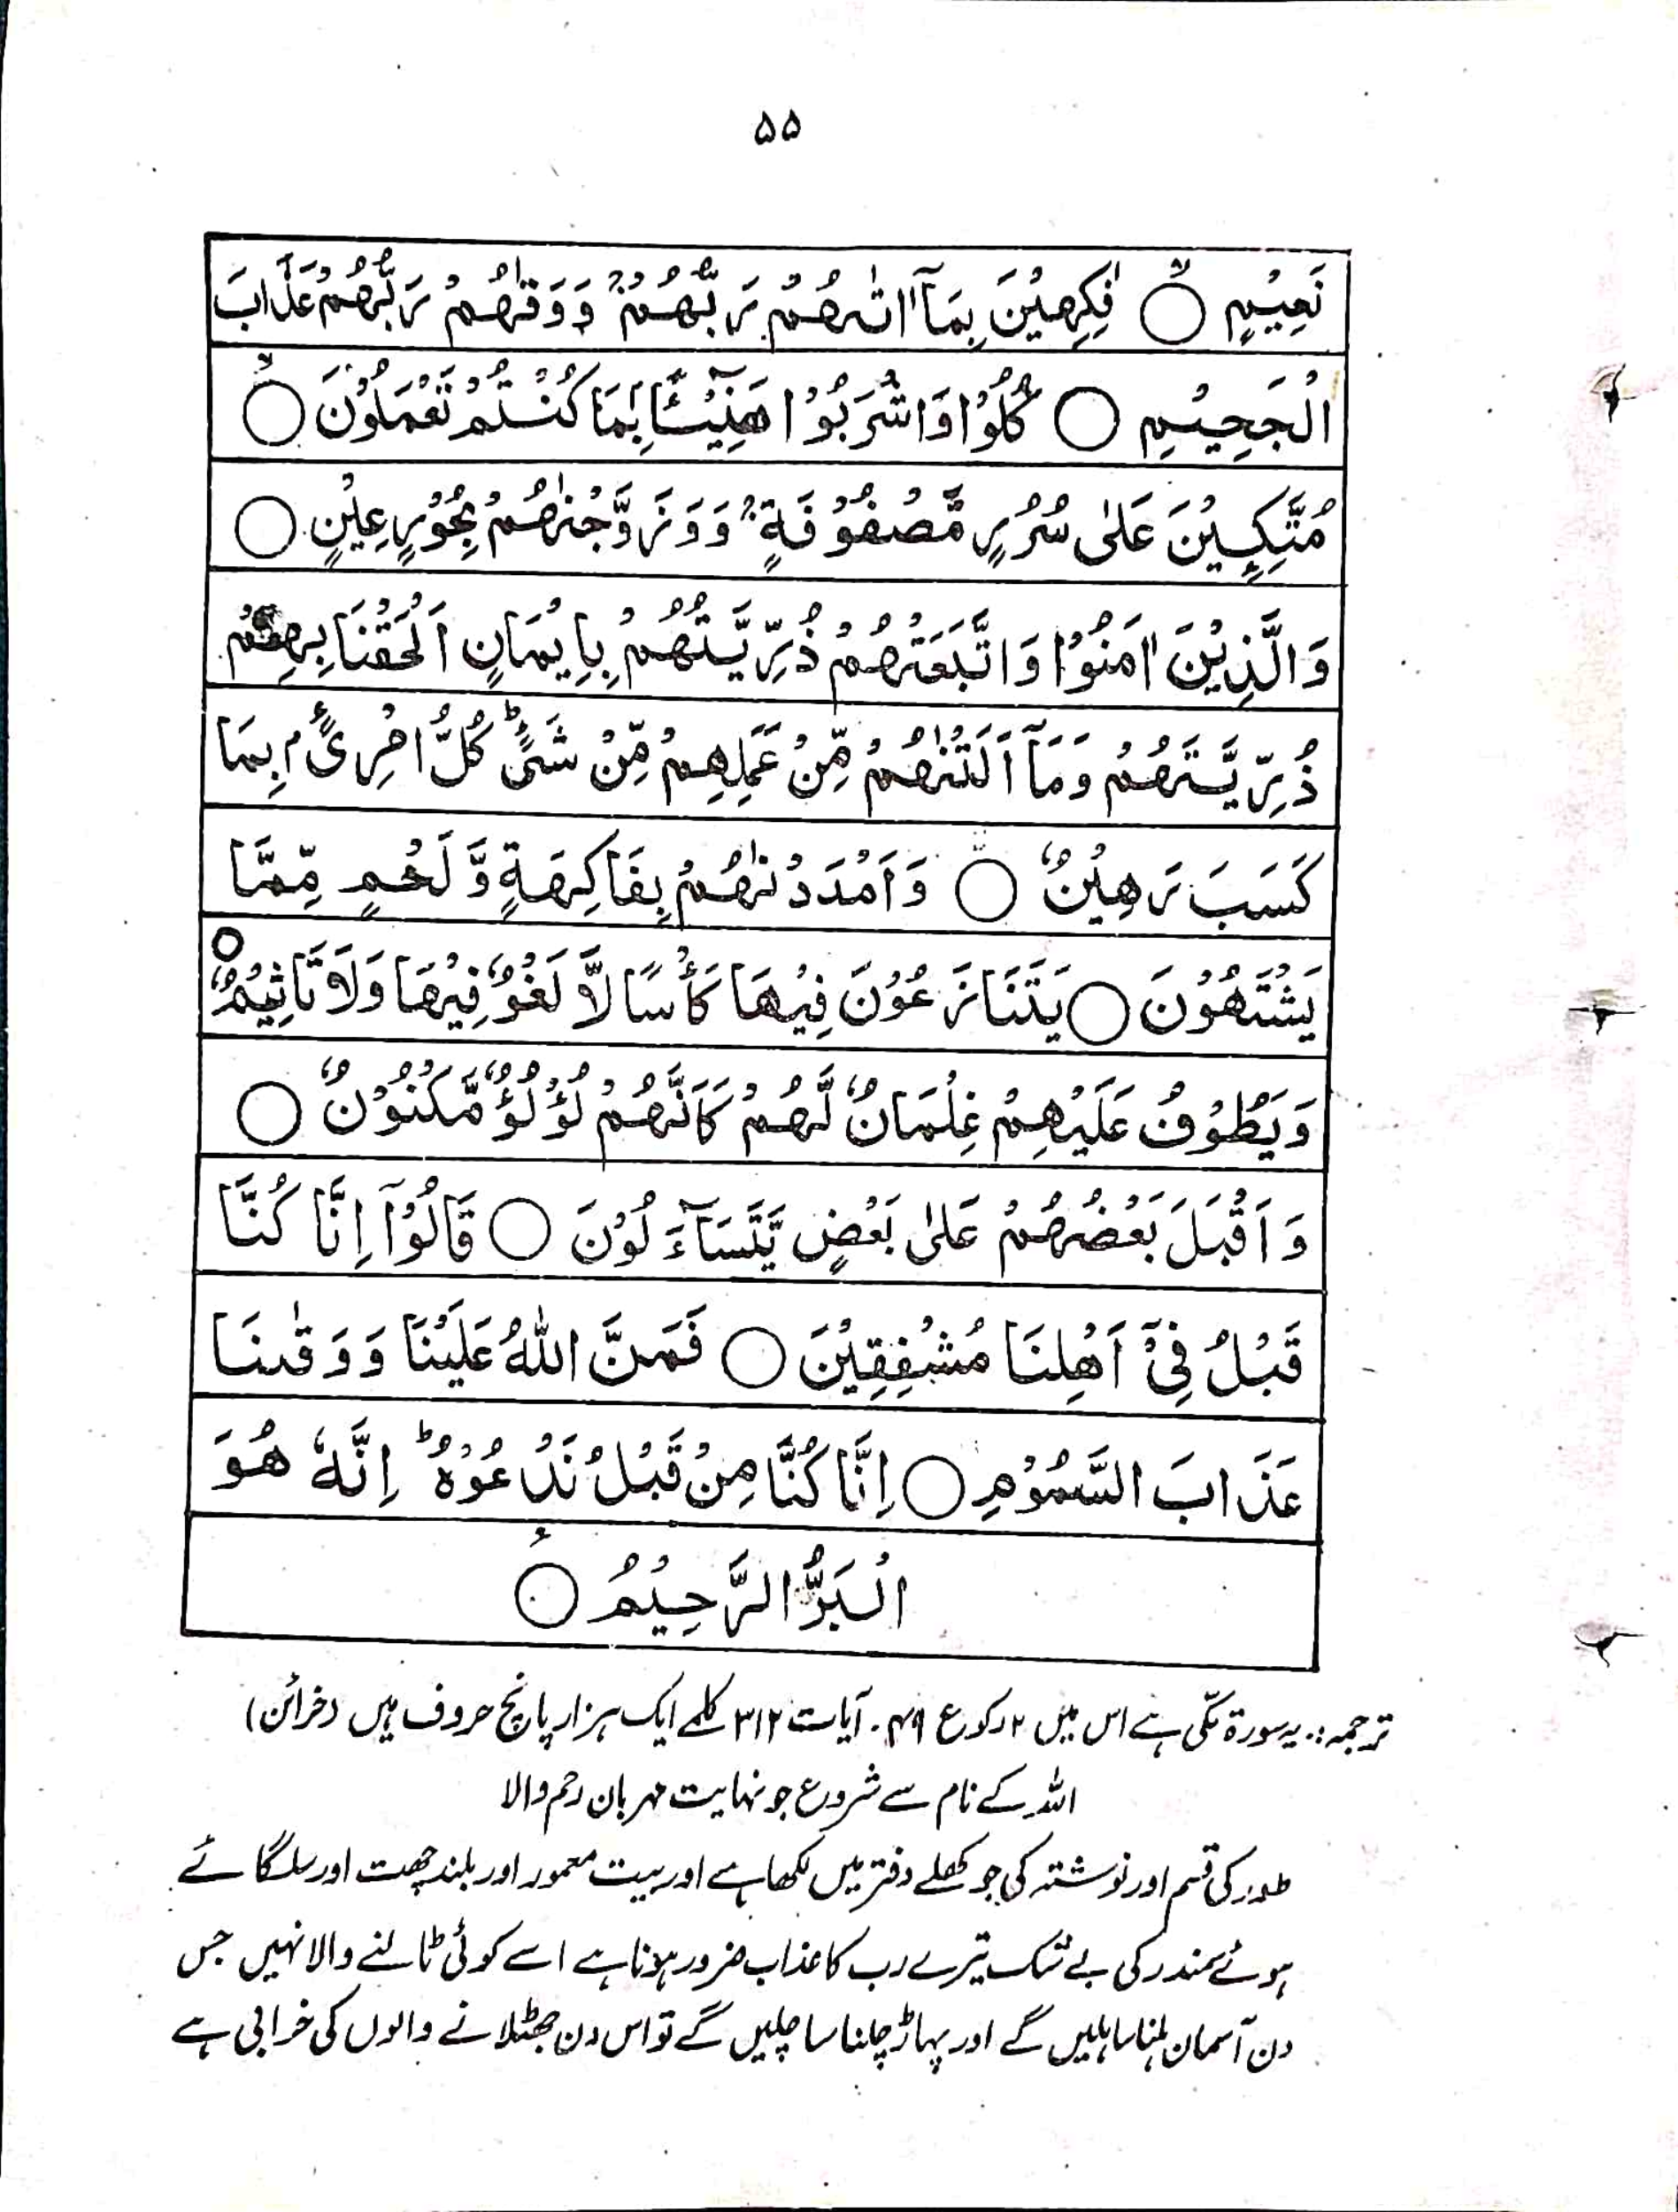 ۵۵
نَعِيْمٍ ○ فٰكِهِيْنَ بِمَآ اٰتٰىهُمْ رَبُّهُمْ ۚ وَوَقٰىهُمْ رَبُّهُمْ عَذَابَ
الْجَحِيْمِ ○ كُلُوْا وَاشْرَبُوْا هَنِيْٓئًۢا بِمَا كُنْتُمْ تَعْمَلُوْنَ ○
مُتَّكِـِٕيْنَ عَلٰى سُرُرٍ مَّصْفُوْفَةٍ ۚ وَ وَزَوَّجْنٰهُمْ بِحُوْرٍ عِيْنٍ ○
وَالَّذِيْنَ اٰمَنُوْا وَاتَّبَعَتْهُمْ ذُرِّيَّتُهُمْ بِاِيْمَانٍ اَلْحَقْنَا بِهِمْ
ذُرِّيَّتَهُمْ وَمَآ اَلَتْنٰهُمْ مِّنْ عَمَلِهِمْ مِّنْ شَىْءٍ ؕ كُلُّ امْرِئٍۢ بِمَا
كَسَبَ رَهِيْنٌ ○ وَاَمْدَدْنٰهُمْ بِفَاكِهَةٍ وَّلَحْمٍ مِّمَّا
يَشْتَهُوْنَ ○ يَتَنَازَعُوْنَ فِيْهَا كَاْسًا لَّا لَغْوٌ فِيْهَا وَلَا تَاْثِيْمٌ ○
وَيَطُوْفُ عَلَيْهِمْ غِلْمَانٌ لَّهُمْ كَاَنَّهُمْ لُؤْلُؤٌ مَّكْنُوْنٌ ○
وَاَقْبَلَ بَعْضُهُمْ عَلٰى بَعْضٍ يَّتَسَآءَلُوْنَ ○ قَالُوْٓا اِنَّا كُنَّا
قَبْلُ فِيْٓ اَهْلِنَا مُشْفِقِيْنَ ○ فَمَنَّ اللّٰهُ عَلَيْنَا وَوَقٰىنَا
عَذَابَ السَّمُوْمِ ○ اِنَّا كُنَّا مِنْ قَبْلُ نَدْعُوْهُ ؕ اِنَّهٗ هُوَ
الْبَرُّ الرَّحِيْمُ ○
ترجمہ:۔ یہ سورۃ مکّی ہے اس میں ۲ رکوع ۴۹۔ آیات ۳۱۲ کلمے ایک ہزار پانچ حروف ہیں (خزائن)
اللہ کے نام سے شروع جو نہایت مہربان رحم والا
طور کی قسم اور نوشتہ کی جو کھلے دفتر میں لکھا ہے اور بیت معمور اور بلند چھت اور سلگائے
ہوئے سمندر کی بے شک تیرے رب کا عذاب ضرور ہونا ہے اسے کوئی ٹالنے والا نہیں جس
دن آسمان ہلنا سا ہلیں گے اور پہاڑ چلنا سا چلیں گے تو اس دن جھٹلانے والوں کی خرابی ہے